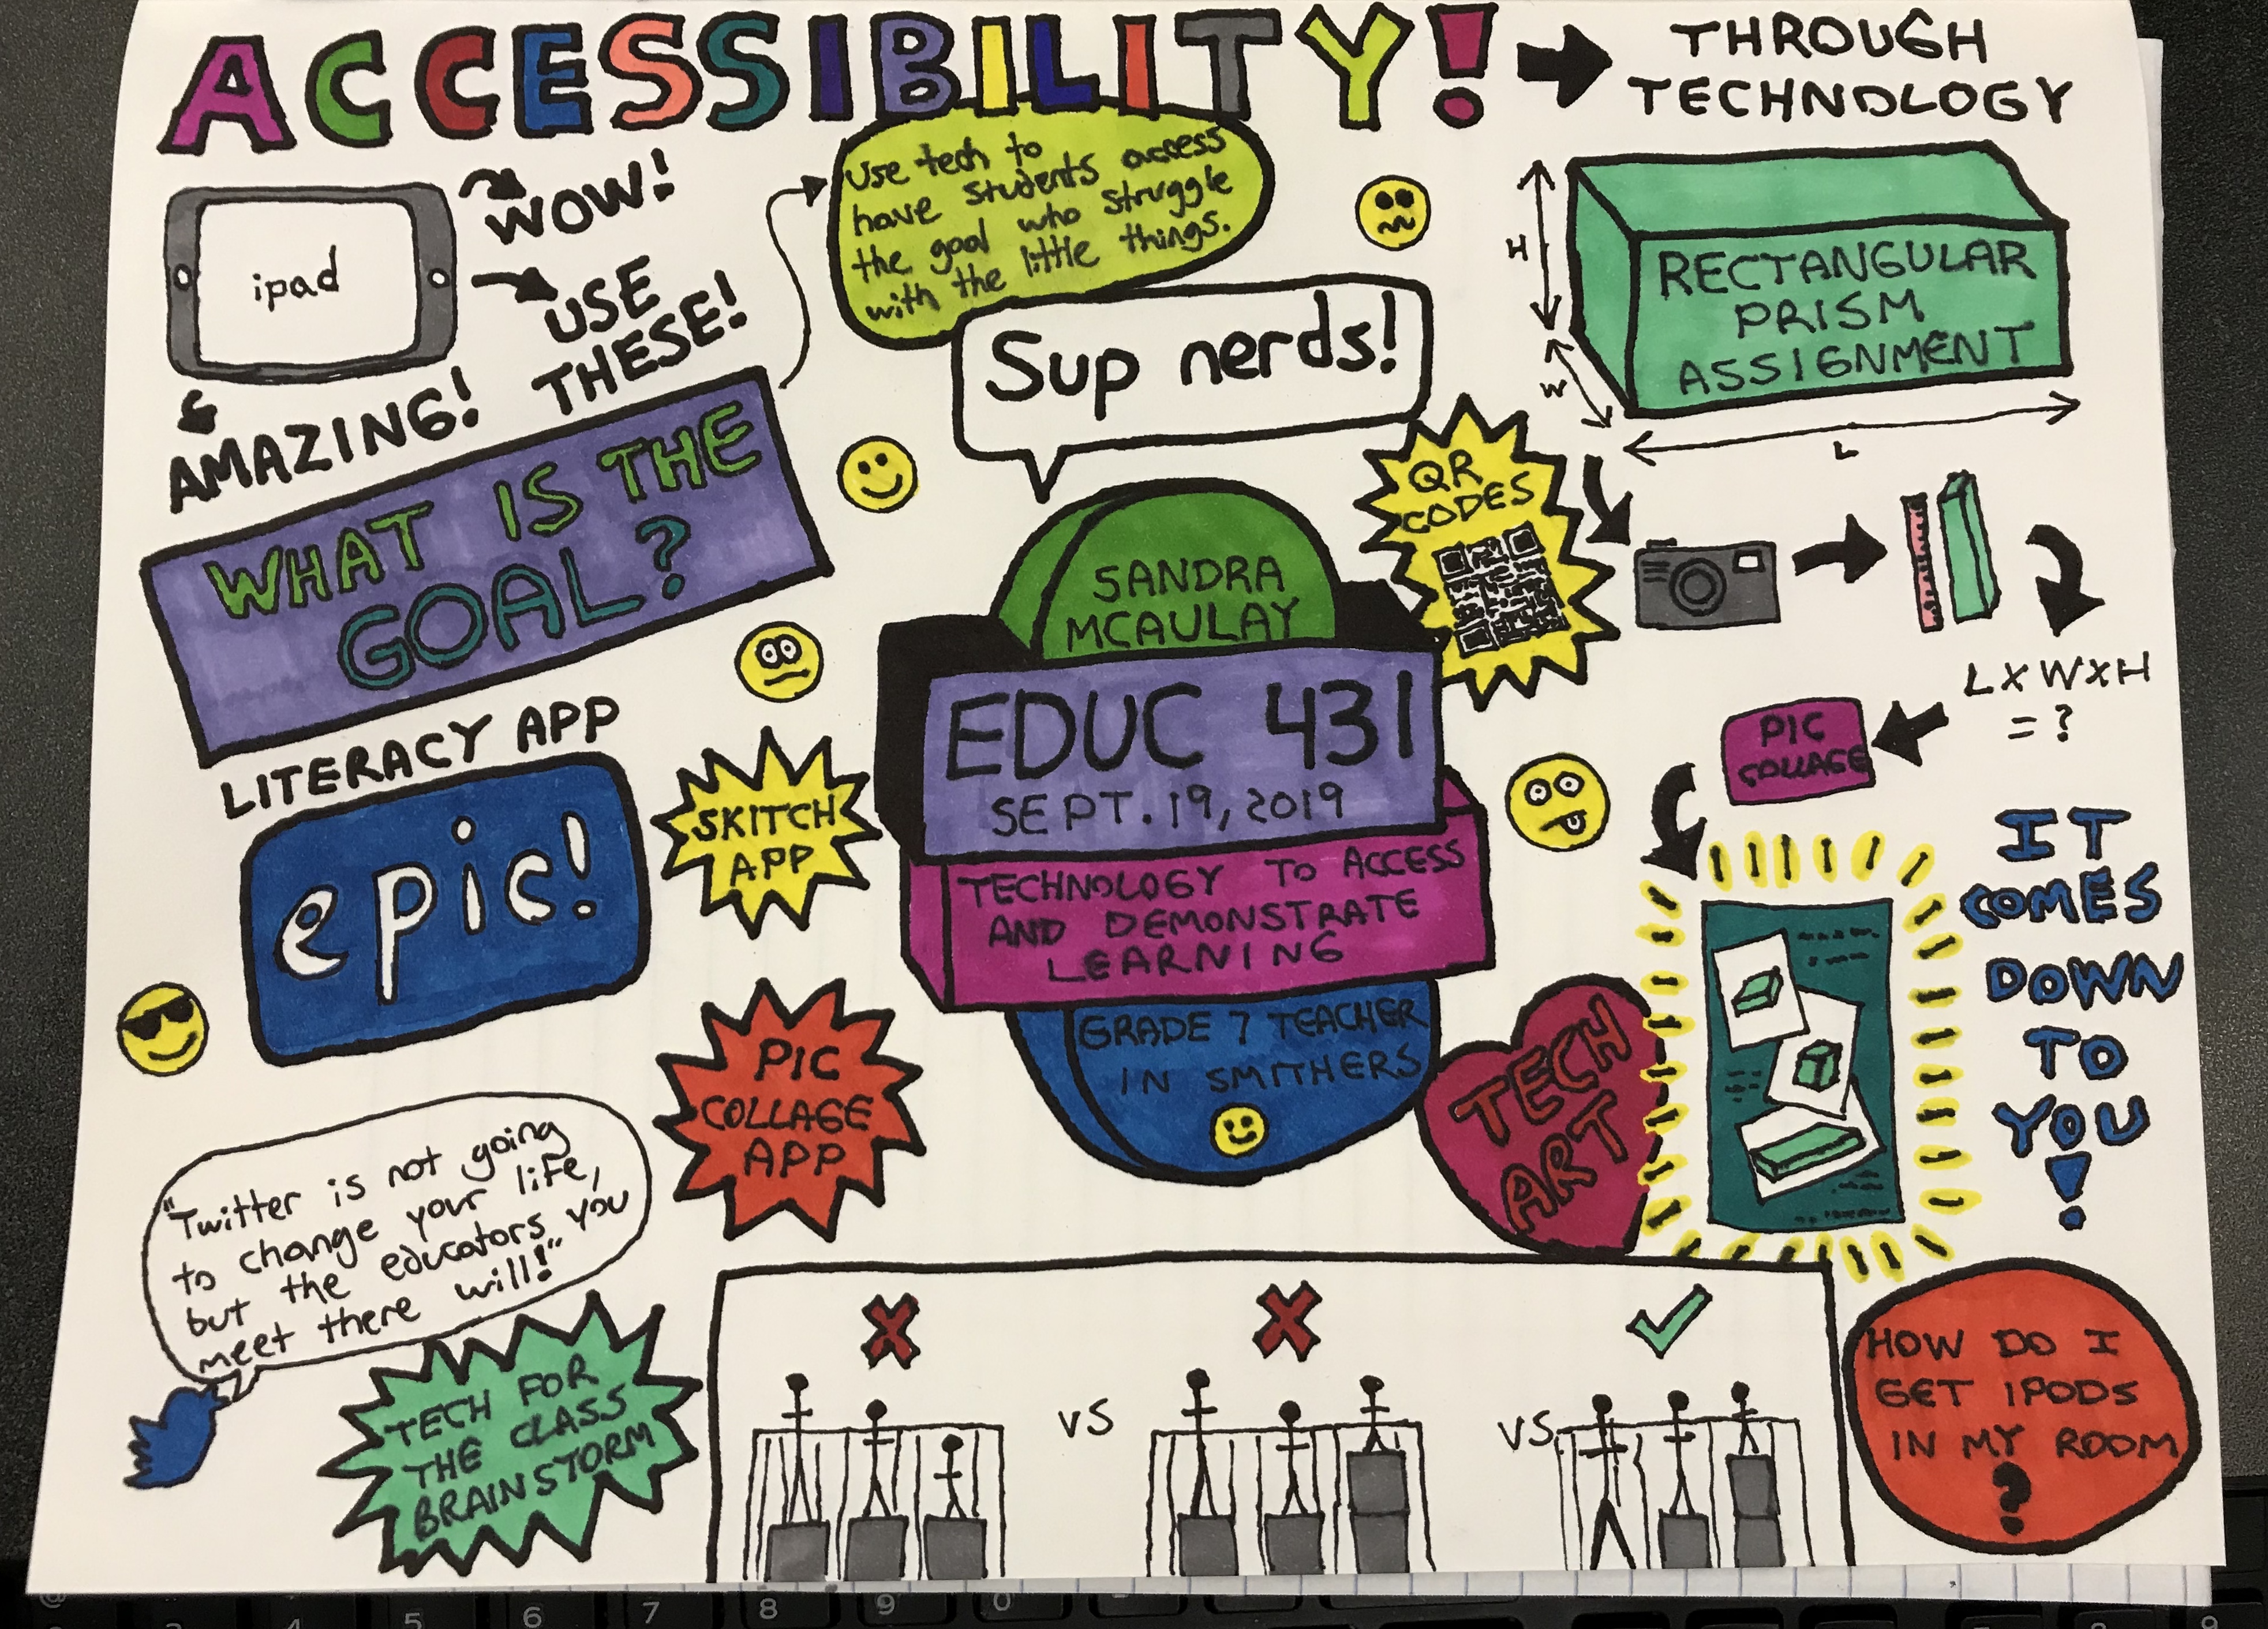 ACCESSIBILITY!
THROUGH
TECHNOLOGY
ipad
WOW!
USE
THESE!
AMAZING!
Use tech to
have students access
the goal who struggle
with the little things.
Sup nerds!
H
W
L
RECTANGULAR
PRISM
ASSIGNMENT
WHAT IS THE
GOAL?
QR
CODES
SANDRA
MCAULAY
EDUC 431
SEPT. 19, 2019
TECHNOLOGY TO ACCESS
AND DEMONSTRATE
LEARNING
GRADE 7 TEACHER
IN SMITHERS
L X W X H
= ?
PIC
COLLAGE
LITERACY APP
epic!
SKITCH
APP
PIC
COLLAGE
APP
TECH
ART
IT
COMES
DOWN
TO
YOU
!
"Twitter is not going
to change your life,
but the educators you
meet there will!"
TECH FOR
THE CLASS
BRAINSTORM
VS
VS
HOW DO I
GET IPODS
IN MY ROOM
?
3 4 5 6 7 8 9 0